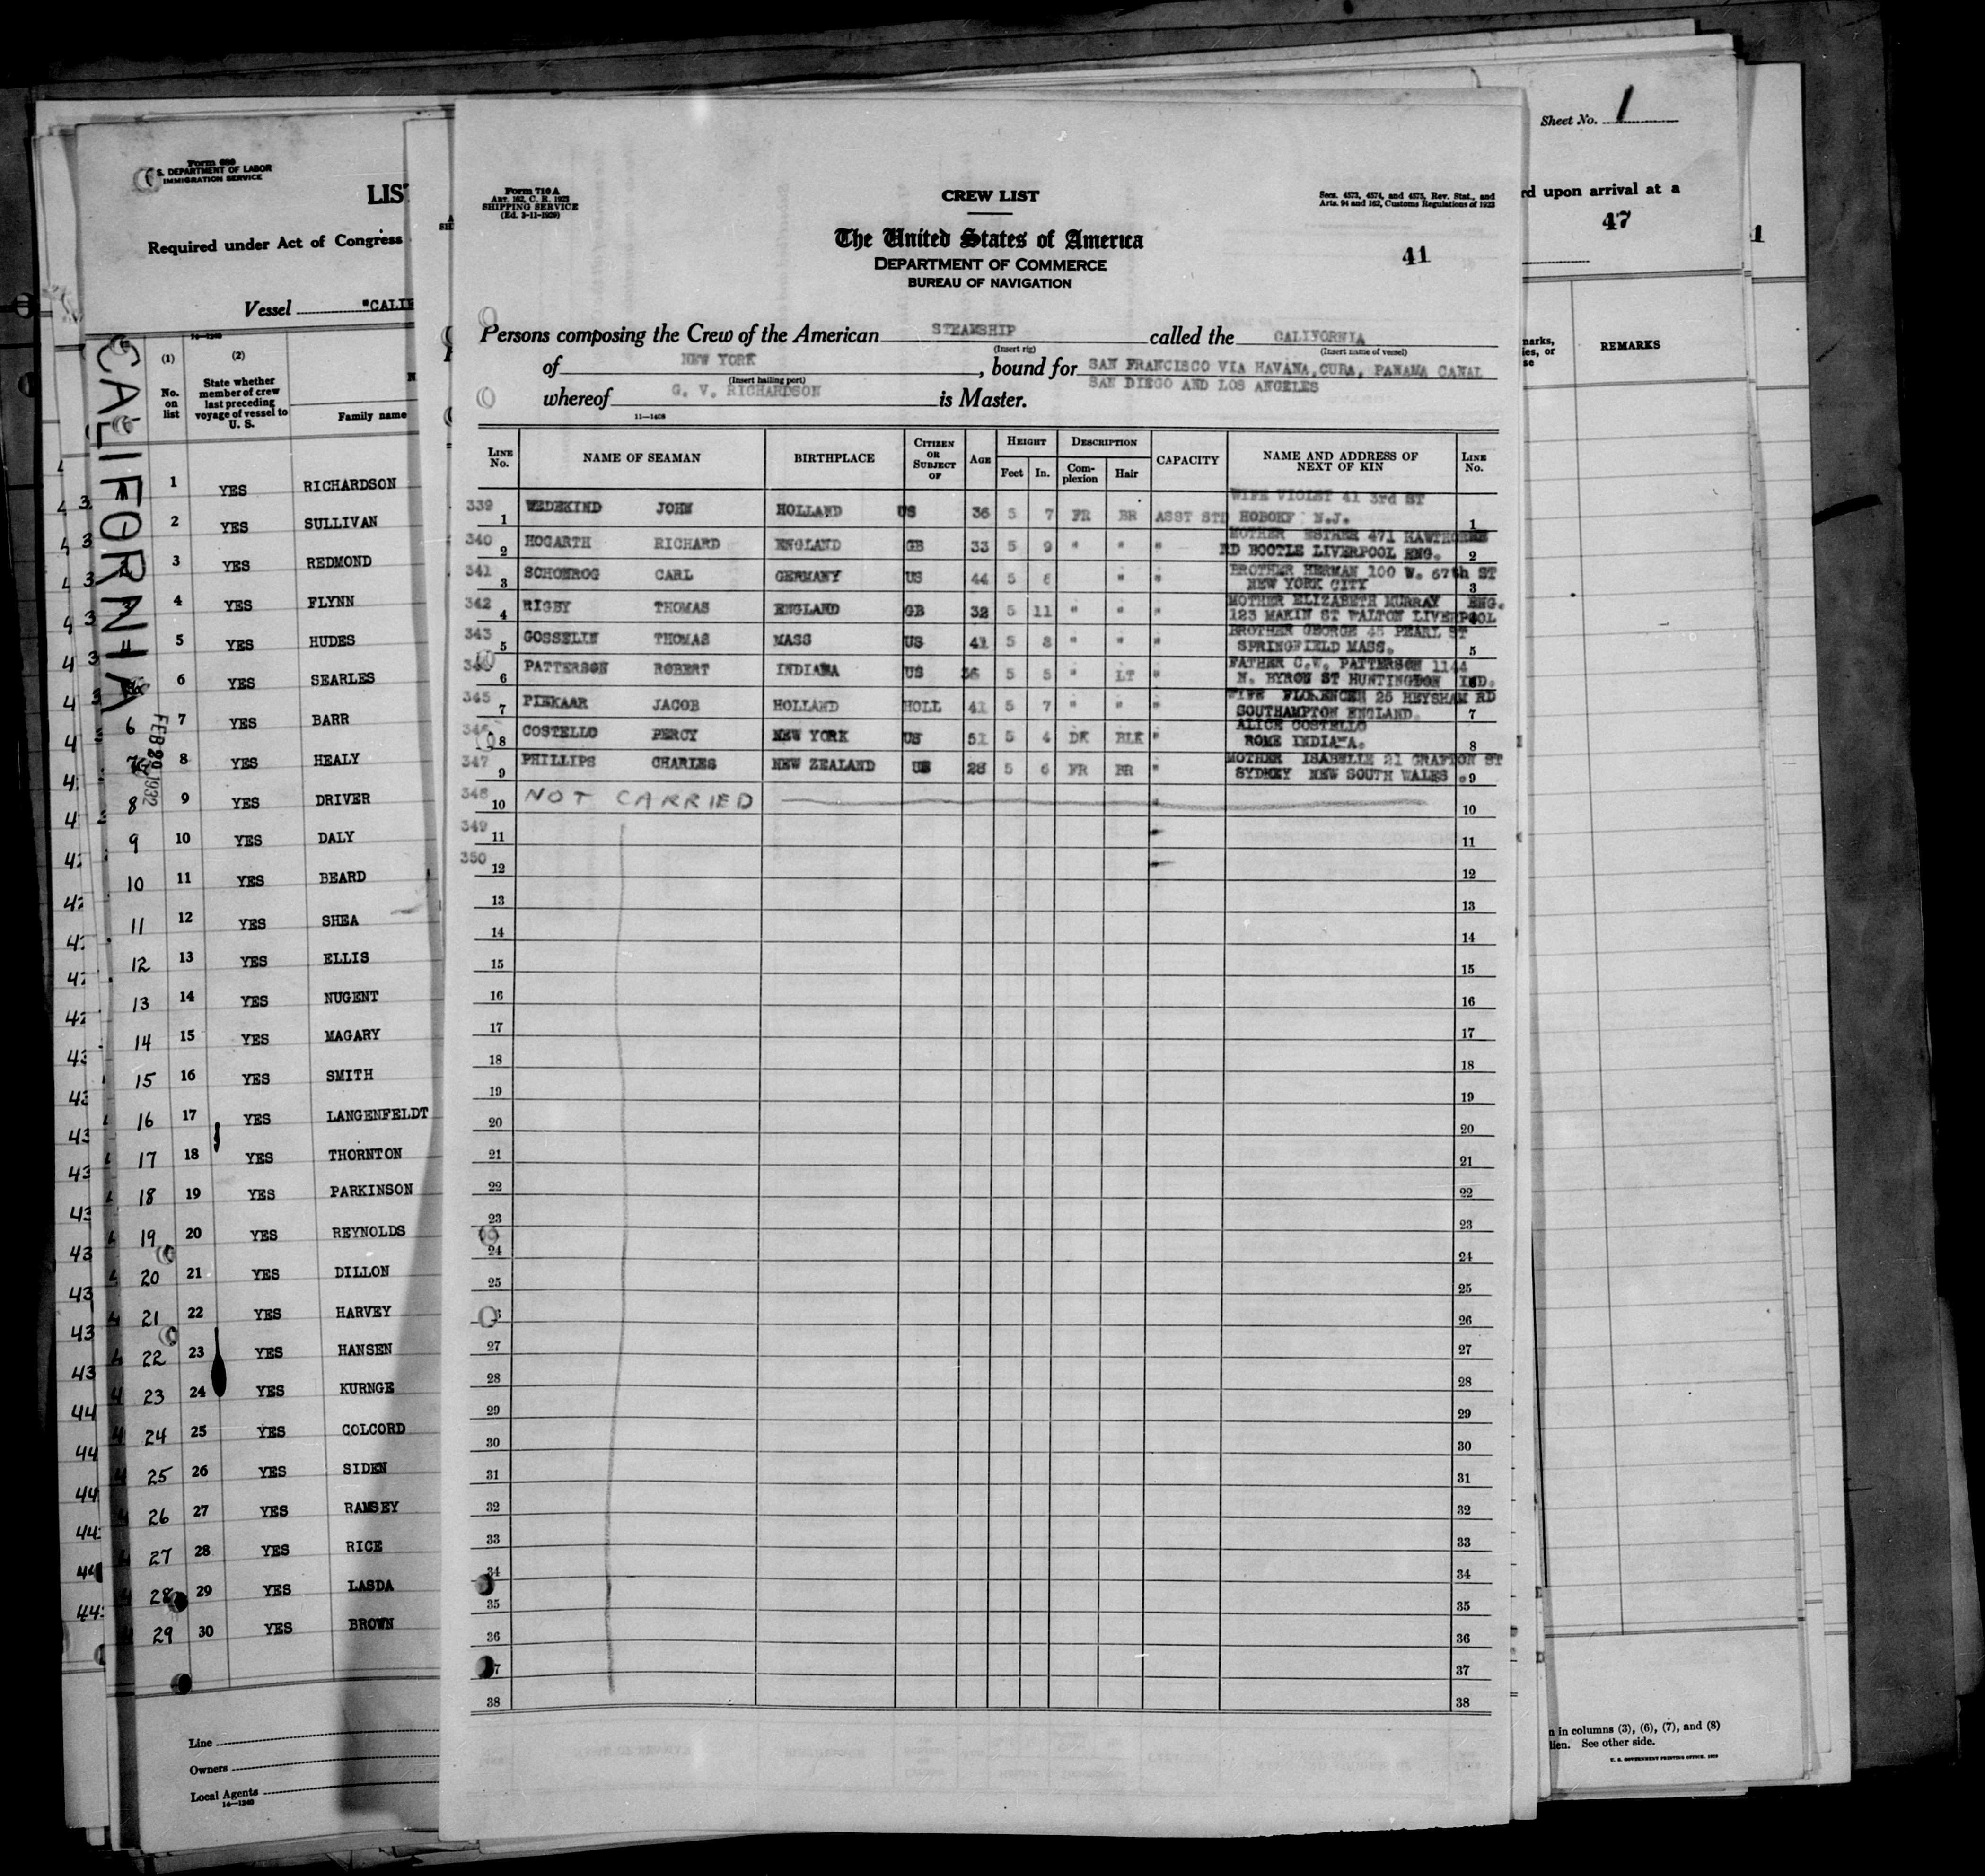 Form 680
S. DEPARTMENT OF LABOR
IMMIGRATION SERVICE
LIST
Required under Act of Congress
Vessel "CALIF
(1) (2)
No. on list
State whether member of crew last preceding voyage of vessel to U. S.
Family name
CALIFORNIA
FEB 20 1932
1 YES RICHARDSON
2 YES SULLIVAN
3 YES REDMOND
4 YES FLYNN
5 YES HUDES
6 YES SEARLES
6 7 YES BARR
8 YES HEALY
8 9 YES DRIVER
9 10 YES DALY
10 11 YES BEARD
11 12 YES SHEA
12 13 YES ELLIS
13 14 YES NUGENT
14 15 YES MAGARY
15 16 YES SMITH
16 17 YES LANGENFELDT
17 18 YES THORNTON
18 19 YES PARKINSON
19 20 YES REYNOLDS
20 21 YES DILLON
21 22 YES HARVEY
22 23 YES HANSEN
23 24 YES KURNGE
24 25 YES COLCORD
25 26 YES SIDEN
26 27 YES RAMSEY
27 28 YES RICE
28 29 YES LASDA
29 30 YES BROWN
Line
Owners
Local Agents
14—1240
Form 710 A
ART. 162, C. R. 1923
SHIPPING SERVICE
(Ed. 3-11-1929)
CREW LIST
Secs. 4573, 4574, and 4575, Rev. Stat., and
Arts. 94 and 162, Customs Regulations of 1923
The United States of America
DEPARTMENT OF COMMERCE
BUREAU OF NAVIGATION
41
Persons composing the Crew of the American STEAMSHIP called the CALIFORNIA
(Insert rig) (Insert name of vessel)
of NEW YORK, bound for SAN FRANCISCO VIA HAVANA, CUBA, PANAMA CANAL
(Insert hailing port) SAN DIEGO AND LOS ANGELES
whereof G. V. RICHARDSON is Master.
11—1428
LINE No. NAME OF SEAMAN BIRTHPLACE CITIZEN OR SUBJECT OF AGE HEIGHT Feet In. DESCRIPTION Complexion Hair CAPACITY NAME AND ADDRESS OF NEXT OF KIN LINE No.
339 WIFE VIOLET 41 3rd ST
1 WEDEKIND JOHN HOLLAND US 36 5 7 FR BR ASST STD HOBOKF N.J. 1
340 MOTHER ESTHER 471 HAWTHORNE
2 HOGARTH RICHARD ENGLAND GB 33 5 9 " " " RD BOOTLE LIVERPOOL ENG. 2
341 BROTHER HERMAN 100 W. 67th ST
3 SCHONROG CARL GERMANY US 44 5 6 " " NEW YORK CITY 3
342 MOTHER ELIZABETH MURRAY ENG.
4 RIGBY THOMAS ENGLAND GB 32 5 11 " " " 123 MAKIN ST WALTON LIVERPOOL
343 BROTHER GEORGE 45 PEARL ST
5 GOSSELIN THOMAS MASS US 41 5 8 " " " SPRINGFIELD MASS. 5
FATHER C.W. PATTERSON 1144
6 PATTERSON ROBERT INDIANA US 36 5 5 " LT " N. BYRON ST HUNTINGDON IND.
345 WIFE FLORENCEN 25 HEYSHAM RD
7 PIEKAAR JACOB HOLLAND HOLL 41 5 7 " " " SOUTHAMPTON ENGLAND. 7
346 ALICE COSTELLO
8 COSTELLO PERCY NEW YORK US 51 5 4 DK BLK " ROME INDIANA. 8
347 MOTHER ISABELLE 21 GRAFTON ST
9 PHILLIPS CHARLES NEW ZEALAND US 28 5 6 FR BR " SYDNEY NEW SOUTH WALES . 9
348
10 NOT CARRIED " 10
349
11 11
350
12 12
13 13
14 14
15 15
16 16
17 17
18 18
19 19
20 20
21 21
22 22
23 23
24 24
25 25
26
27 27
28 28
29 29
30 30
31 31
32 32
33 33
34 34
35 35
36 36
37
38 38
Sheet No. 1
rd upon arrival at a
47
REMARKS
n in columns (3), (6), (7), and (8)
lien. See other side.
U. S. GOVERNMENT PRINTING OFFICE